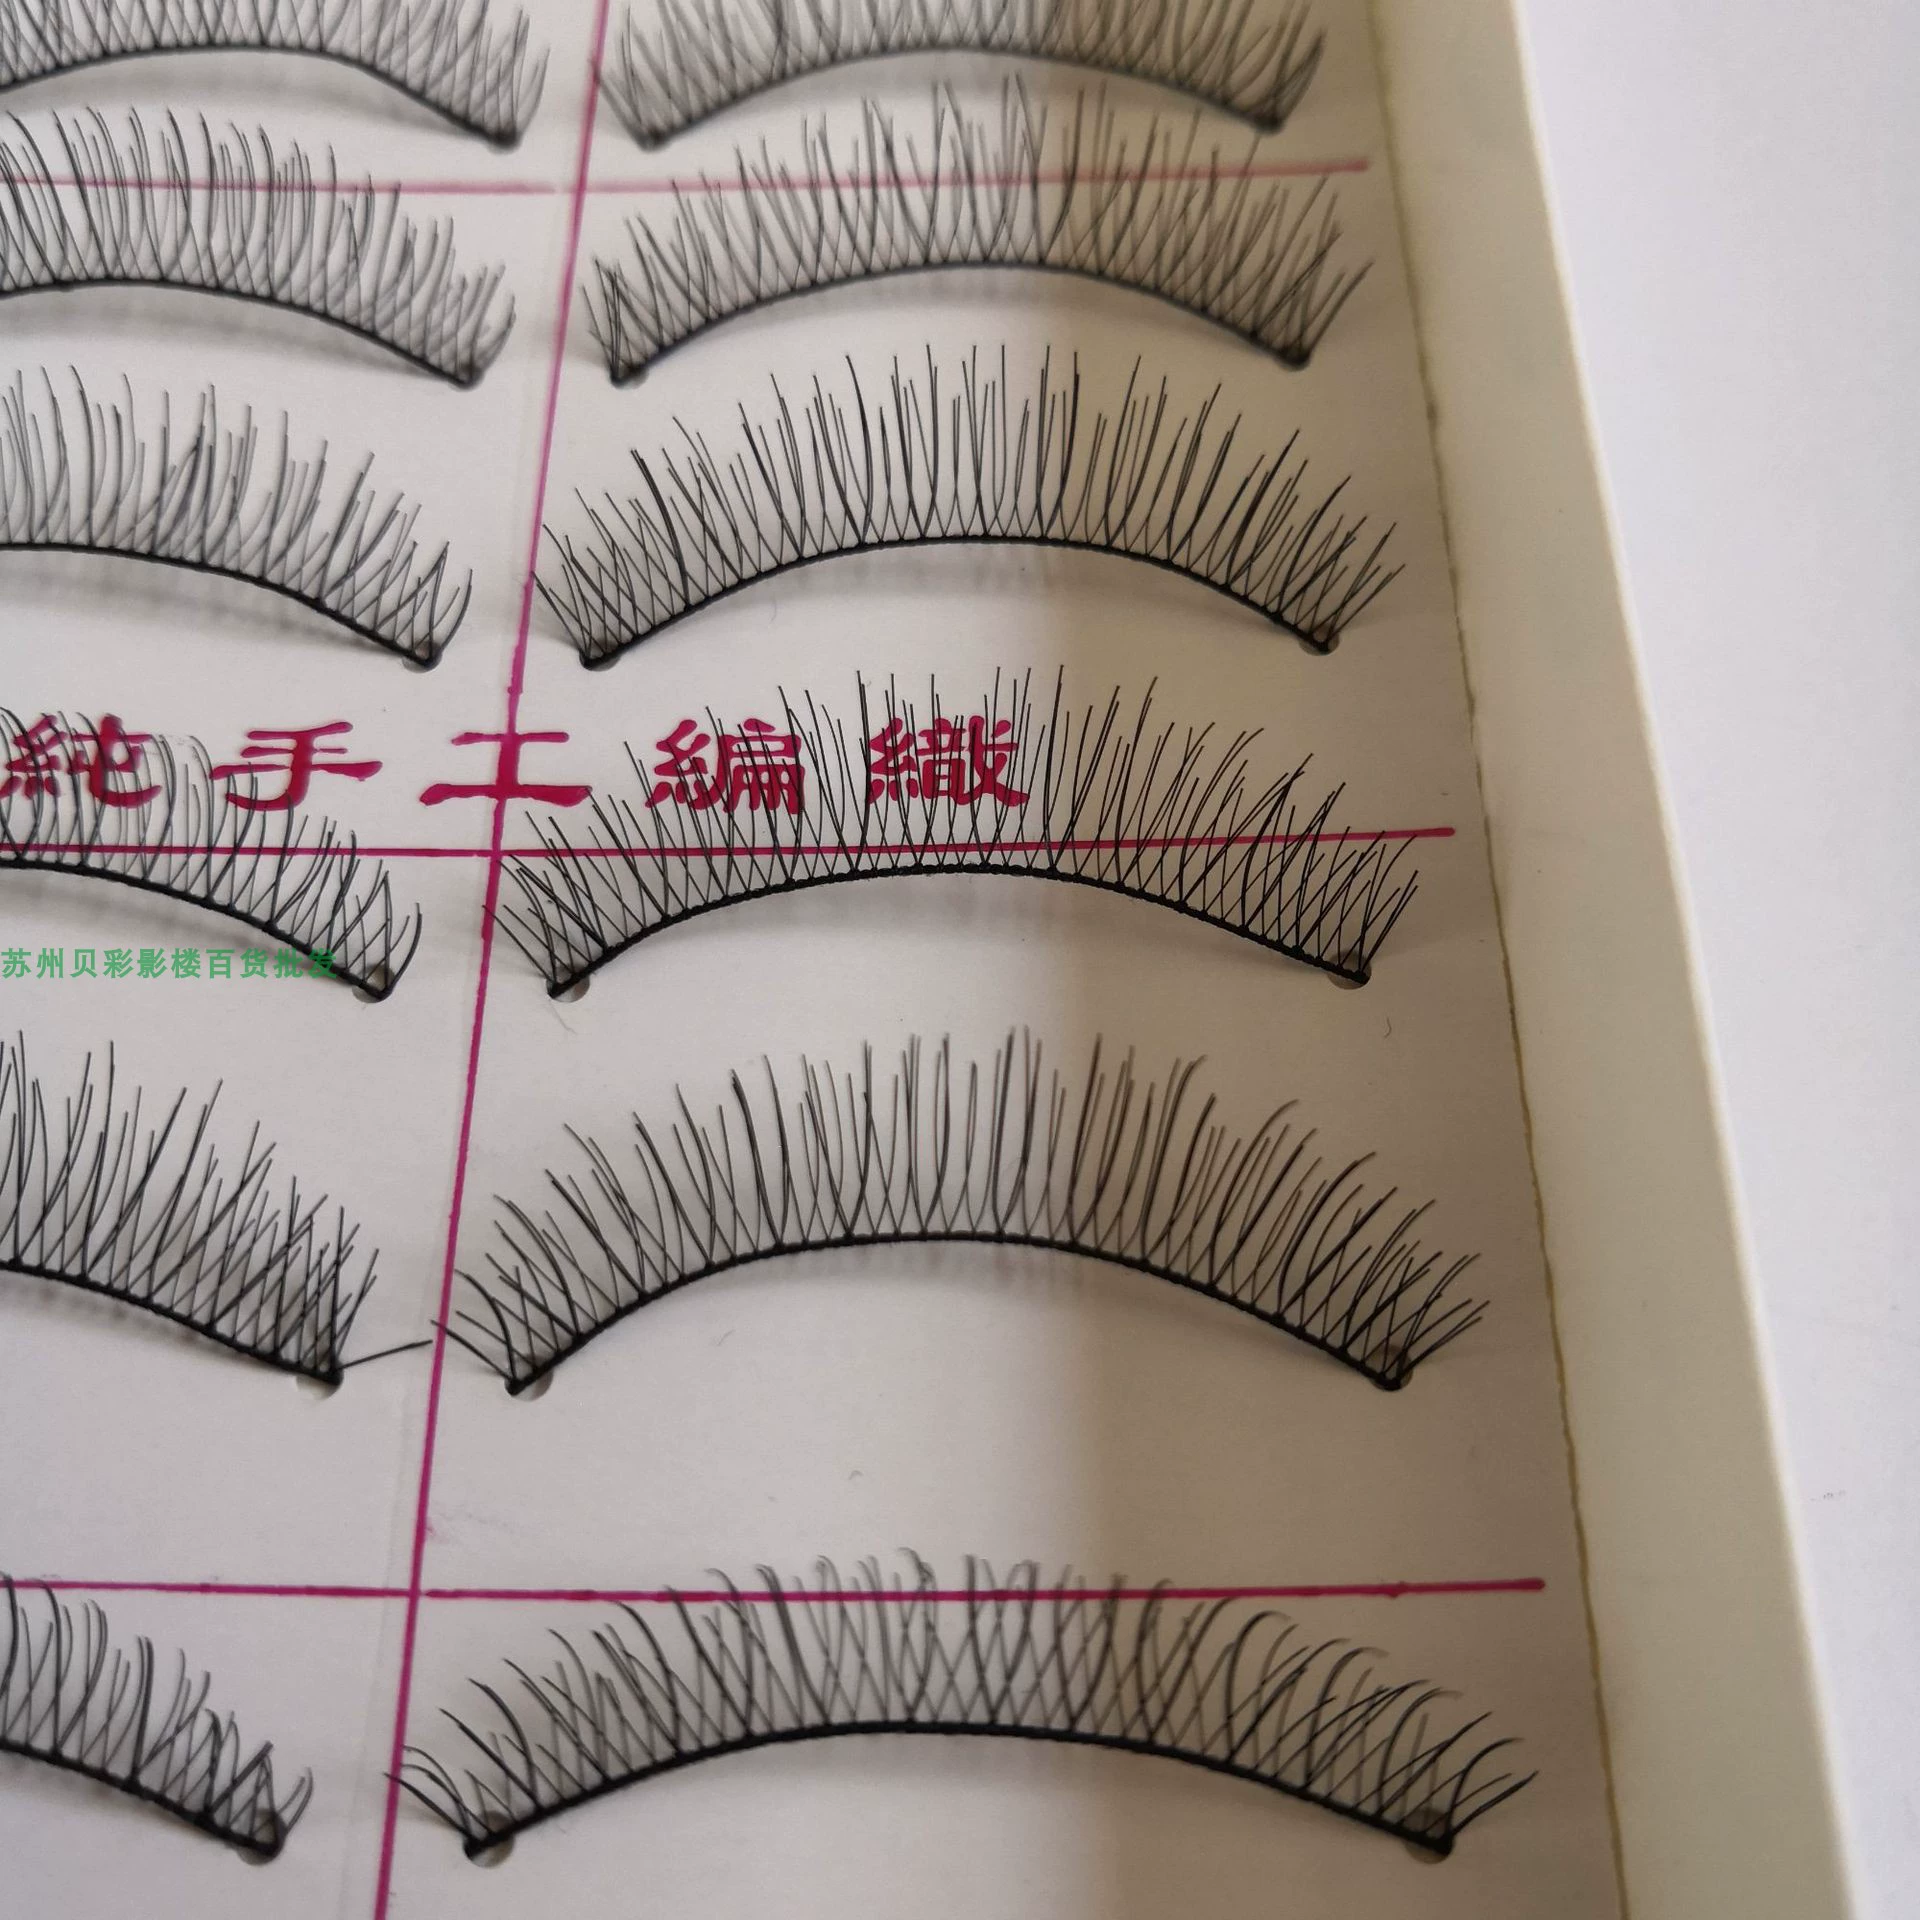 純手工編織
苏州贝彩影楼百货批发